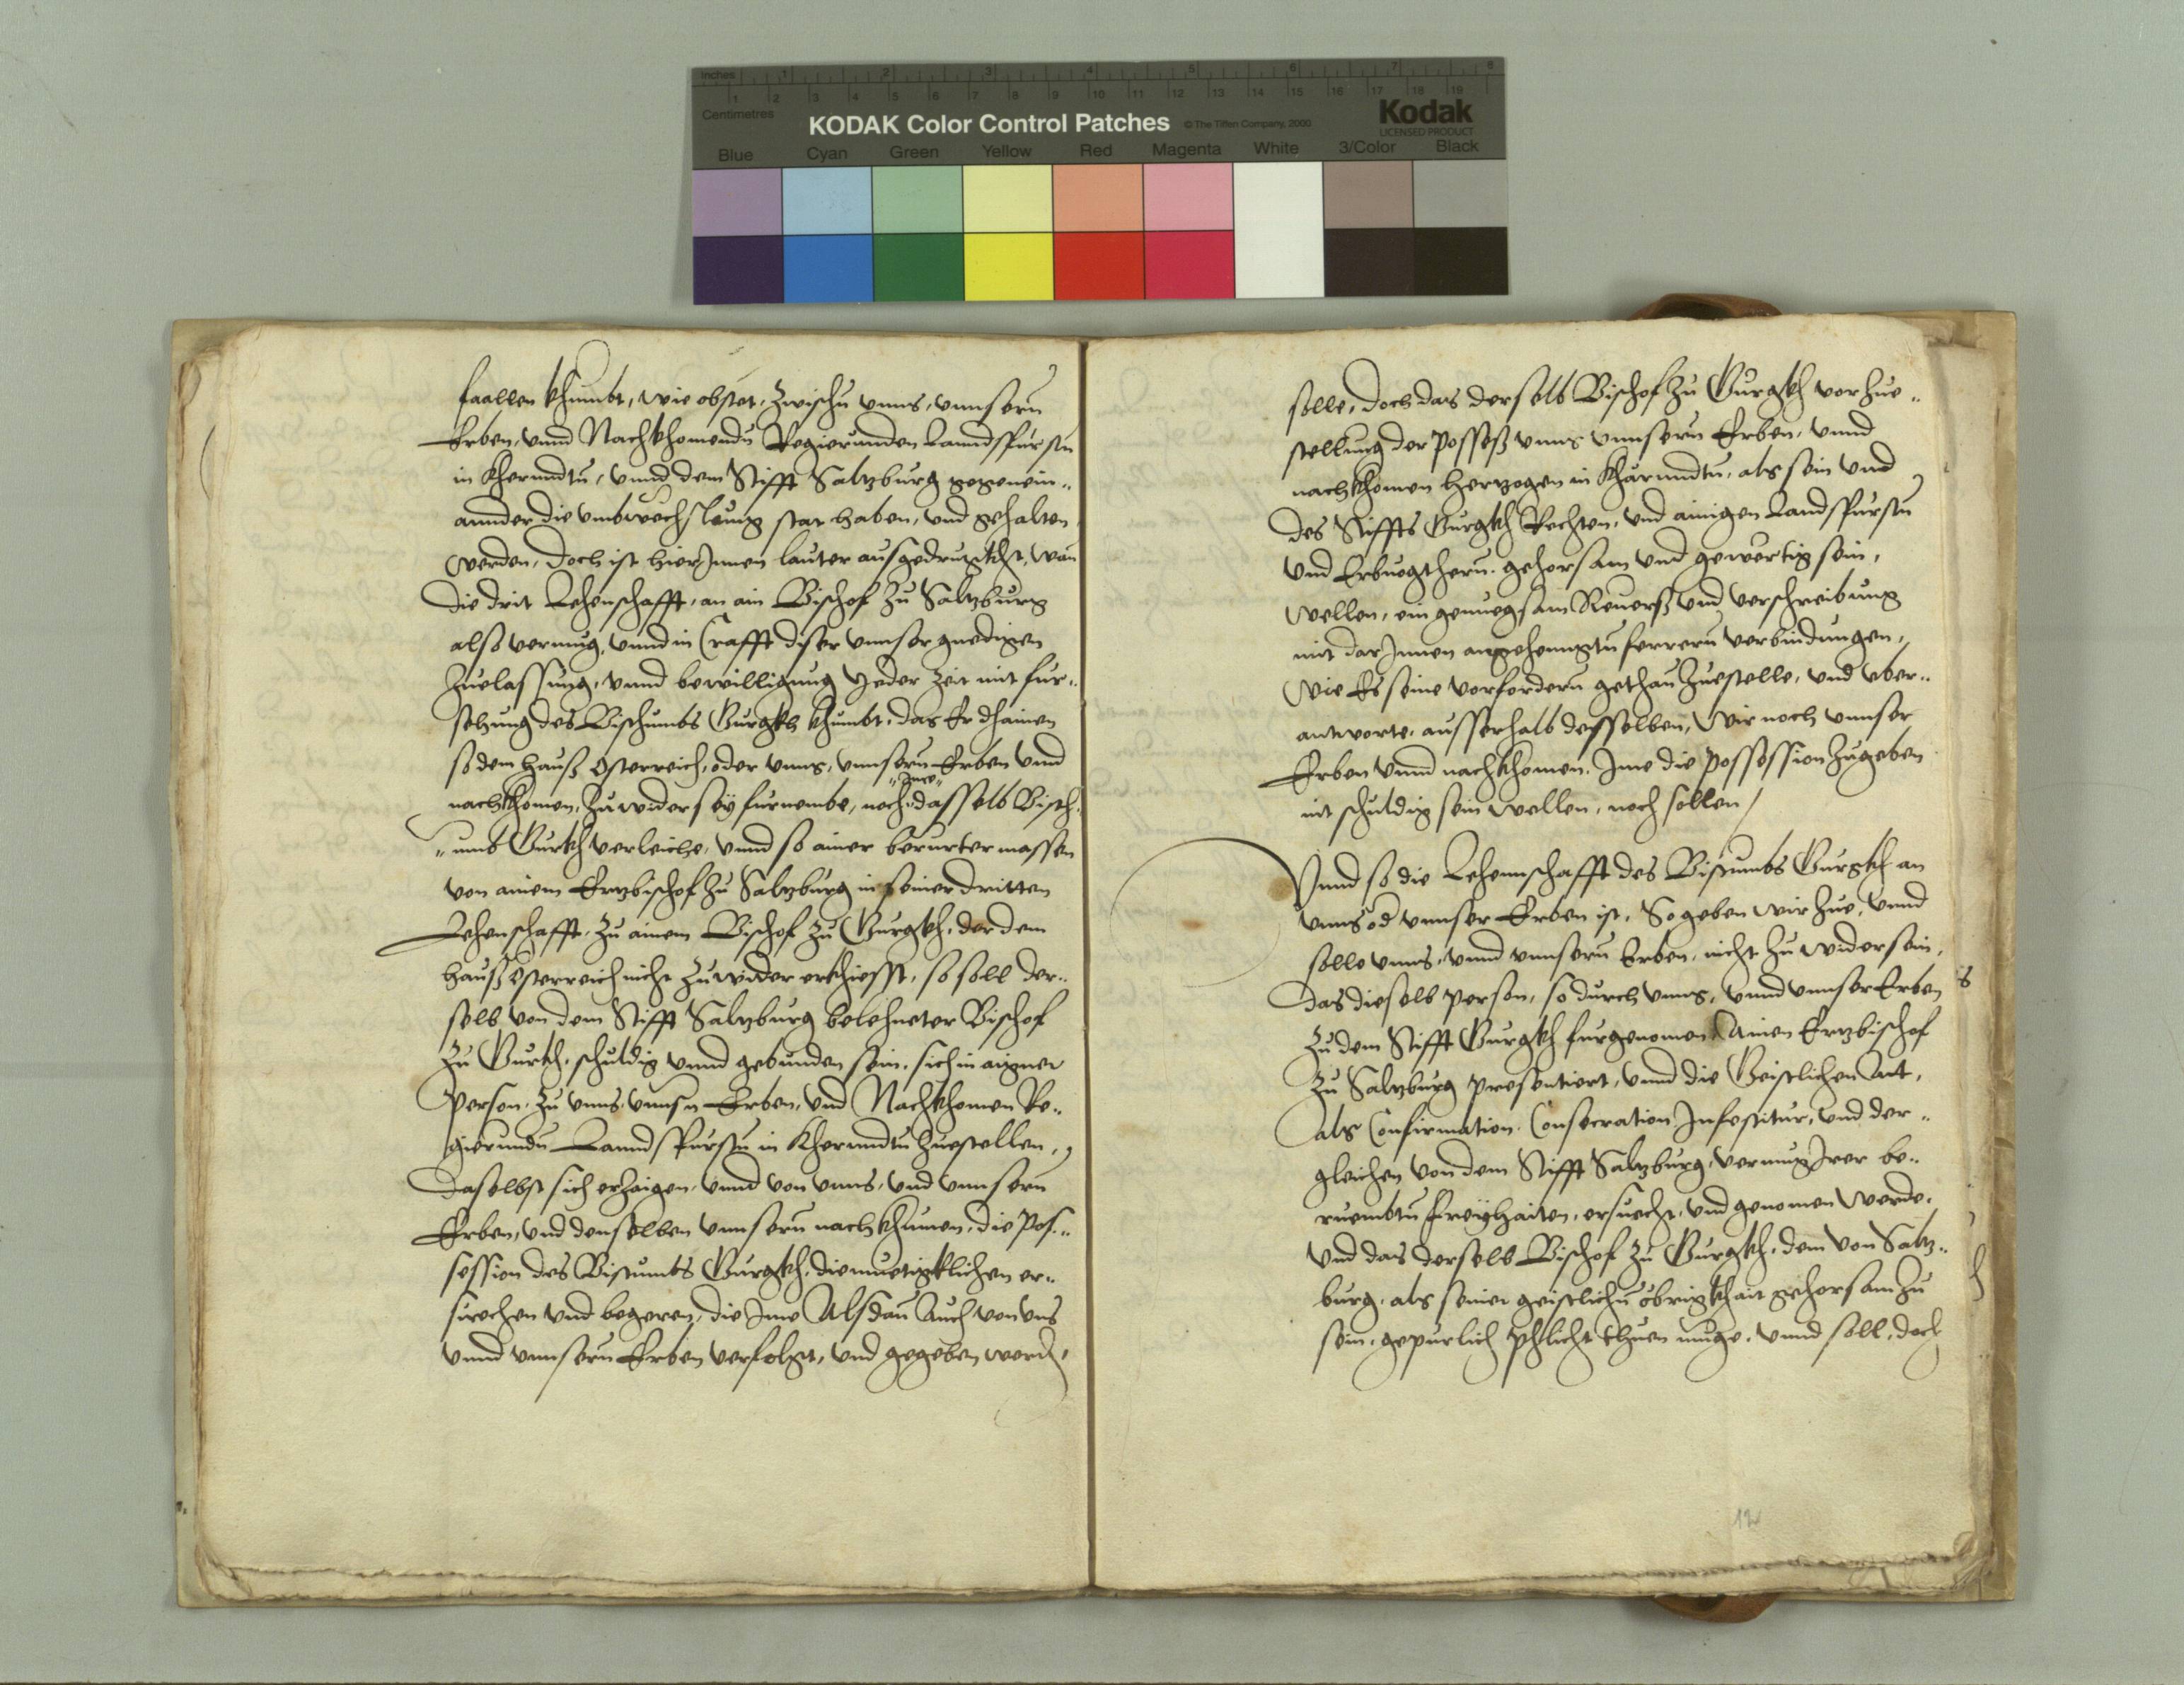 inches 1 2 3 4 5 6 7 8
1 2 3 4 5 6 7 8 9 10 11 12 13 14 15 16 17 18 19
Centimetres
KODAK Color Control Patches © The Tiffen Company, 2000 Kodak
LICENSED PRODUCT
Blue Cyan Green Yellow Red Magenta White 3/Color Black
faallen khumbt, wie obstet, zwischn vnns, vnnsern
Erben, vnnd Nachkhomendn Regierunden Lanndsfursstn
in Khernndtn, vnnd dem Stifft Saltzburg gegenein-
annder die vmbwechslung stat haben, vnd gehalten
werden, doch ist hierJnnen lauter ausgedrugkht, wan
die drit Lehenschafft, an ain Bischof zu Saltzburg
also vermug, vnnd in Crafft diser vnnser gnedigen
Zuelassung, vnnd bewilligung yeder Zeit mit fur-
sehung des Bischumbs Gurgkh khumbt, das Er khainen
so dem hauß Osterreich, oder vnns, vnnsern Erben vnd
nachkhomen, zuwider sey furnembe, noch Jme dasselb Bisch-
umb Gurkh verleiche, vnnd so ainer berurter massen
von ainem Ertzbischof zu Saltzburg in seiner dritten
Lehenschafft, zu ainem Bischof zu Gurgkh, der dem
hauß Osterreich nicht zuwider erkhiesst, so soll der-
selb von dem Stifft Saltzburg belehneter Bischof
zu Gurkh, schuldig vnnd gebunden sein, sich in aigner
Person, zu vnns, vnnsn Erben, vnd Nachkhomen Re-
gierundn Lanndsfurstn in Khernndtn zuestellen,
daselbst sich erzaigen, vnnd von vnns, vnd vnnsern
Erben, vnd denselben vnnsern nachkhumen, die Pos-
session des Bistumbs Gurgkh, diemuetigklichen er-
suechen vnd begeren, die Jme Alsdan Auch von vns
vnnd vnnsern Erben verfolgt, vnd gegeben werdn
solle, doch das derselb Bischof zu Gurgkh vor zue-
stellung der Posseß vnns vnnsern Erben, vnnd
nachkhomen Hertzogen in Kharnndtn, als sein vnd
des Stiffts Gurgkh Rechten, vnd ainigen Landsfurstn
vnd Erbuogthern, gehorsam vnd gewertig sein,
wellen, ein genuegsam Reuerß vnd verschreibung
mit darJnnen angehenngtn ferrern verbindungen,
Wie Es seine vorfordern gethan Zuestelle, vnd vber-
antworte, ausserhalb desselben, Wir noch vnnser
Erben vnnd nachkhomen, Jme die Possession zugeben
nit schuldig sein wellen, noch sollen /
Vnnd so die Lehennschafft des Bistumbs Gurgkh an
vnns od vnnser Erben ist, So geben wir zue, vnnd
solle vnns, vnnd vnnsern Erben, nicht zu wider sein,
das dieselb person, so durch vnns, vnnd vnnser Erben
zu dem Stifft Gurgkh furgenomen, Ainen Ertzbischof
zu Saltzburg presentiert, vnnd die Geistlichen Act,
als Confirmation, Consecration Jnfestitur, vnd der-
gleichen von dem Stifft Saltzburg, vermug Jrer be-
ruembtn freyhaiten, ersuecht, vnd genomen werde,
vnd das derselb Bischof zu Gurgkh, dem von Saltz-
burg, als seiner geistlichn obrigkhait gehorsam zu
sein, gepurlich phlicht thuen muge, vnnd soll, doch
12